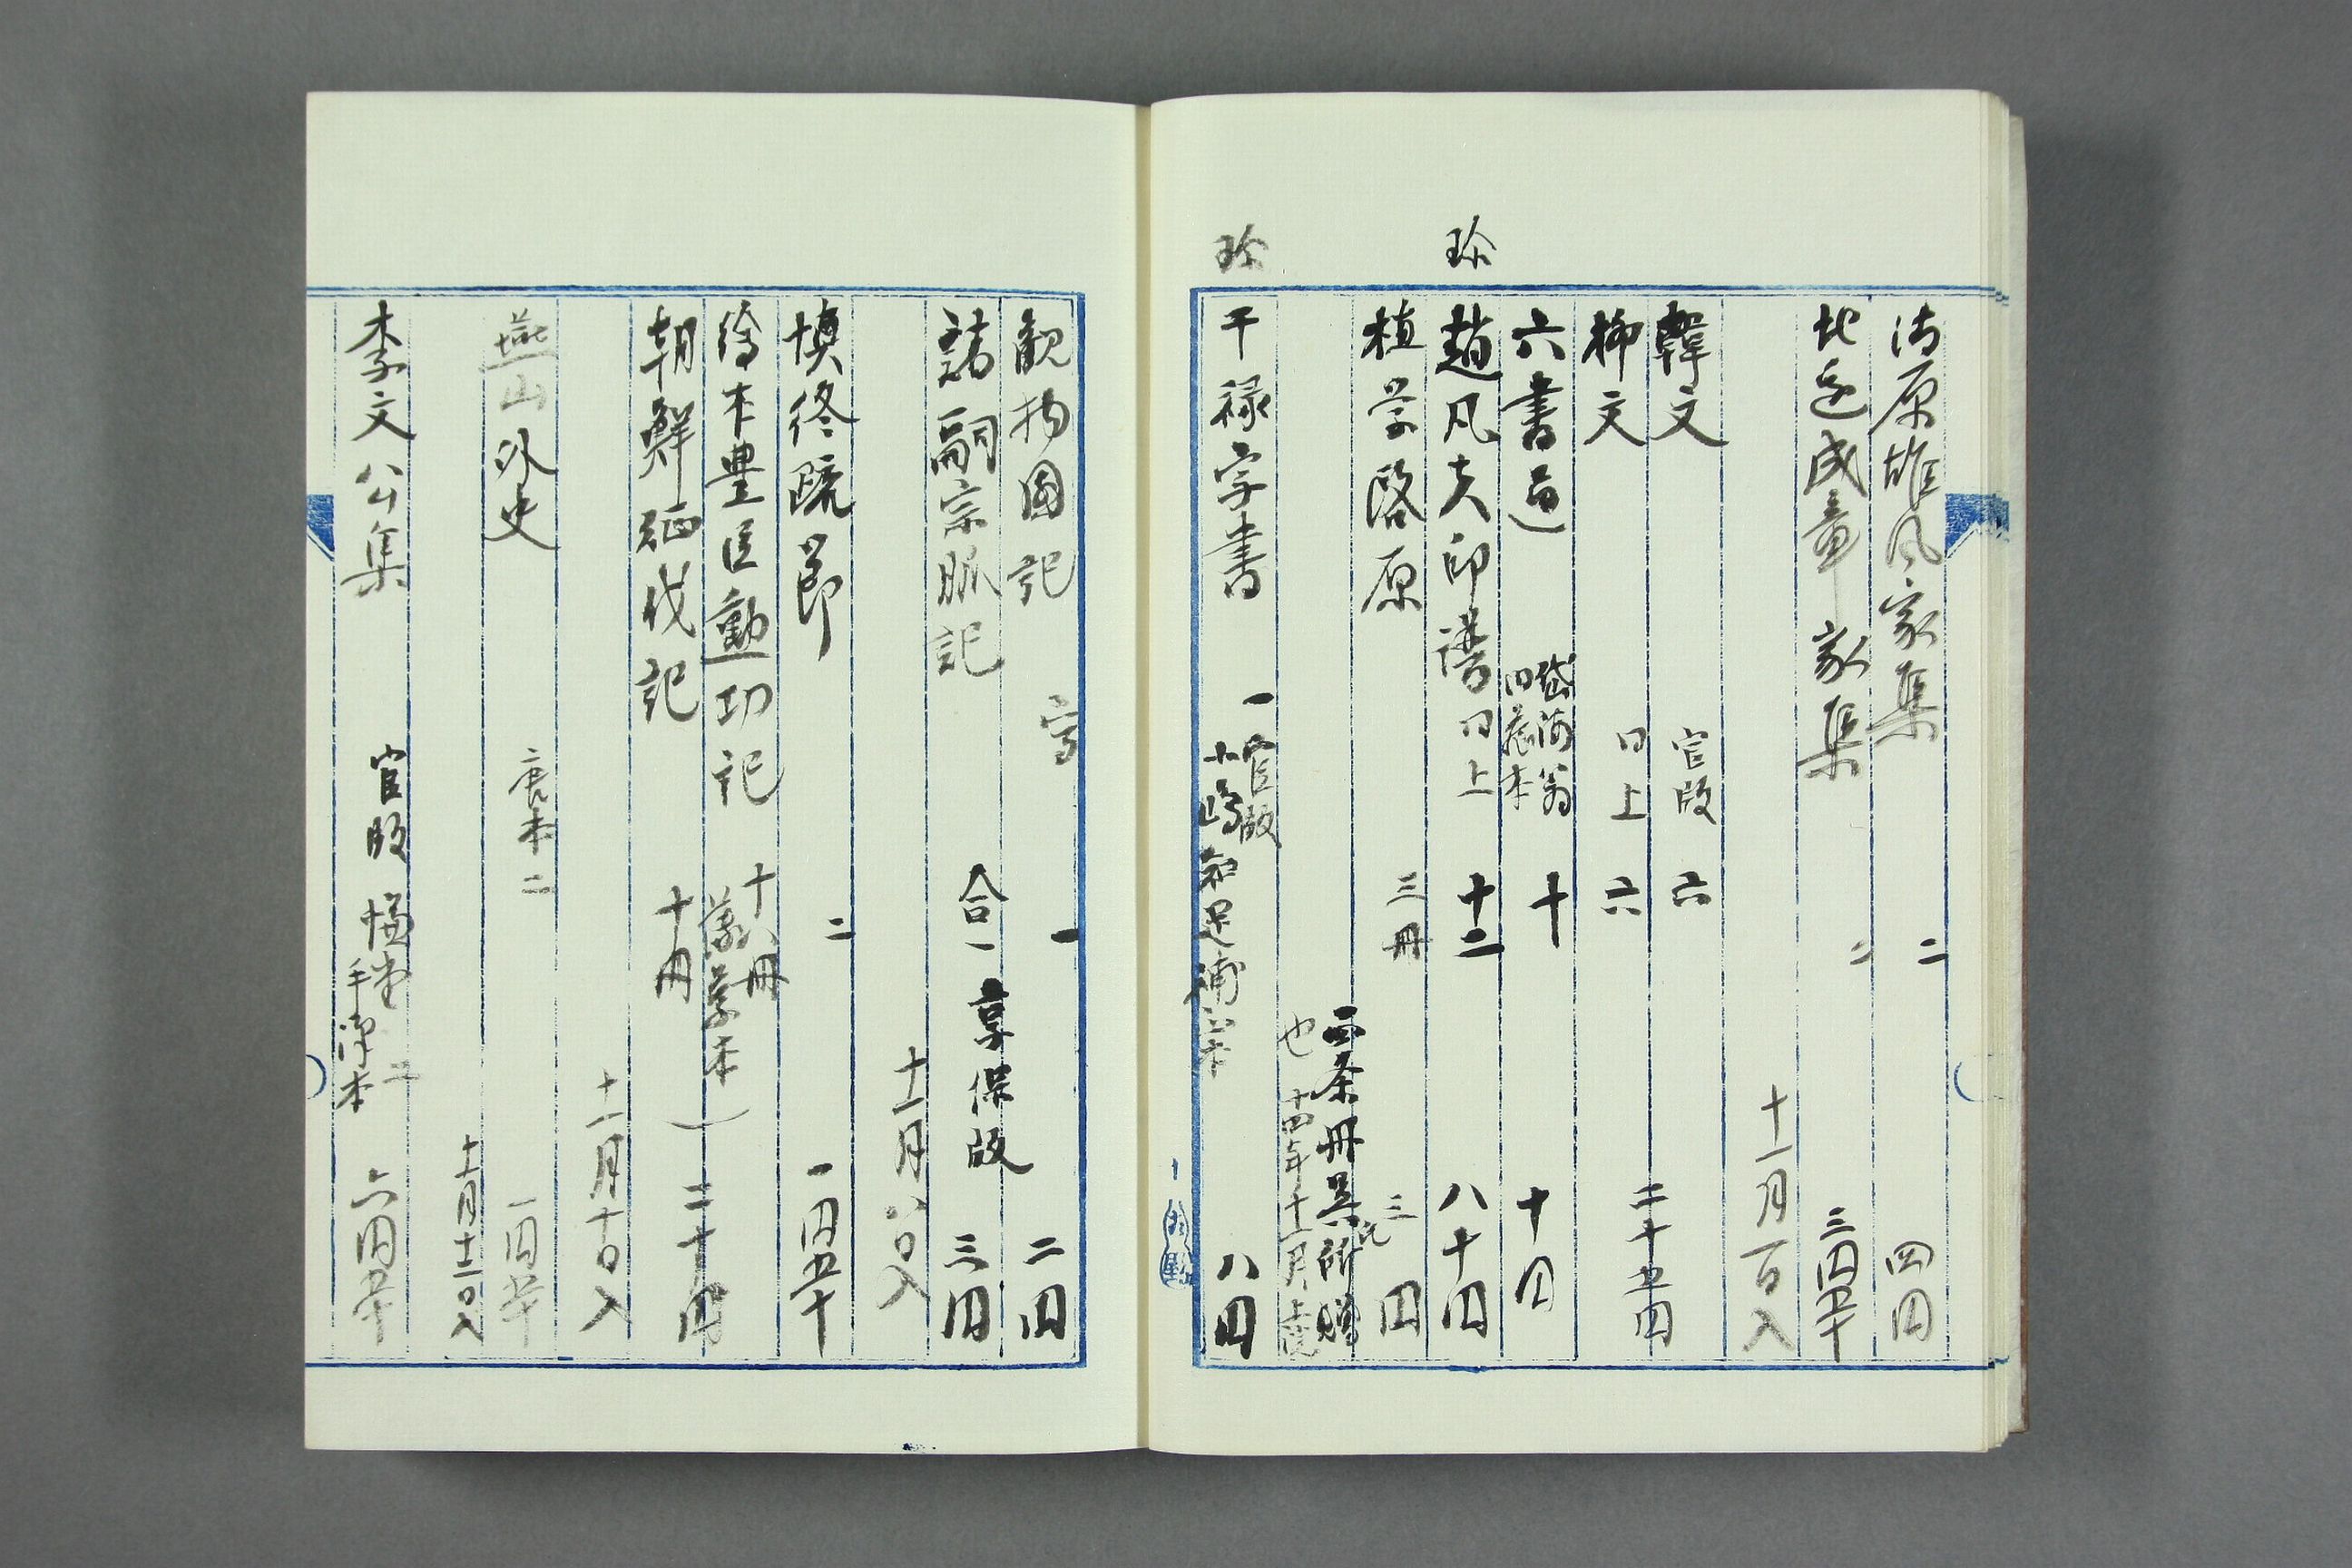 清原雄風家集 二 四円
北辺成章家集 二 三円五十
十一月一日入
韓文 官版 六
柳文 同上 六 二十五円
六書通 旧蔵本 十 十円
珍
趙凡夫印譜 同上 十二 八十円
植学啓原 三冊 三円
四条冊呉氏所贈
也 十四年十一月
珍
干禄字書 一 官版 小嶋知足補 八円
観物図記 写 一 二円
諸嗣宗脈記 合一 享保版 三円
十一月八日入
慎終疏節 二 一円五十
絵本豊臣勲功記 十八冊
朝鮮征伐記 十冊 二十円
十一月十日入
燕山外史 唐本 二 一円五十
十一月十二日入
李文公集 官版 慊堂手沢本 二 六円五十